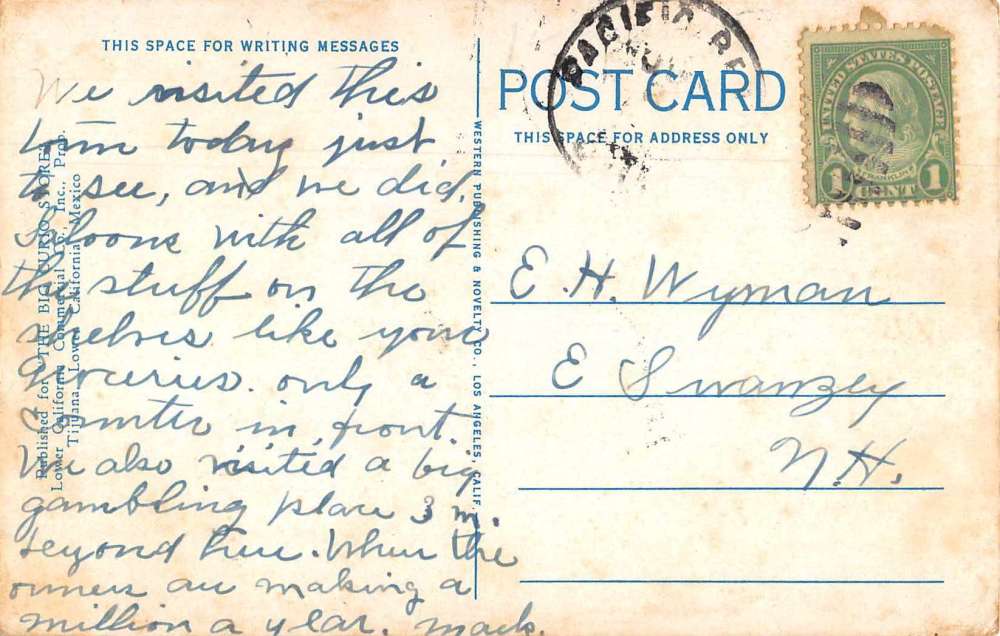 THIS SPACE FOR WRITING MESSAGES
We visited this
town today just
to see, and we did.
Saloons with all of
the stuff on the
shelves like your
groceries. only a
counter in front.
We also visited a big
gambling place 3 m.
beyond here. When the
owners are making a
million a year. Mack.
Published for "THE BIG CURIO STORE"
Lower California Commercial Co., Inc., Prop.
Tijuana, Lower California, Mexico
WESTERN PUBLISHING & NOVELTY CO., LOS ANGELES, CALIF.
PACIFIC
POST CARD
THIS SPACE FOR ADDRESS ONLY
UNITED STATES POSTAGE
FRANKLIN
1 CENT 1
E. H. Wyman
E Swanzey
N.H.